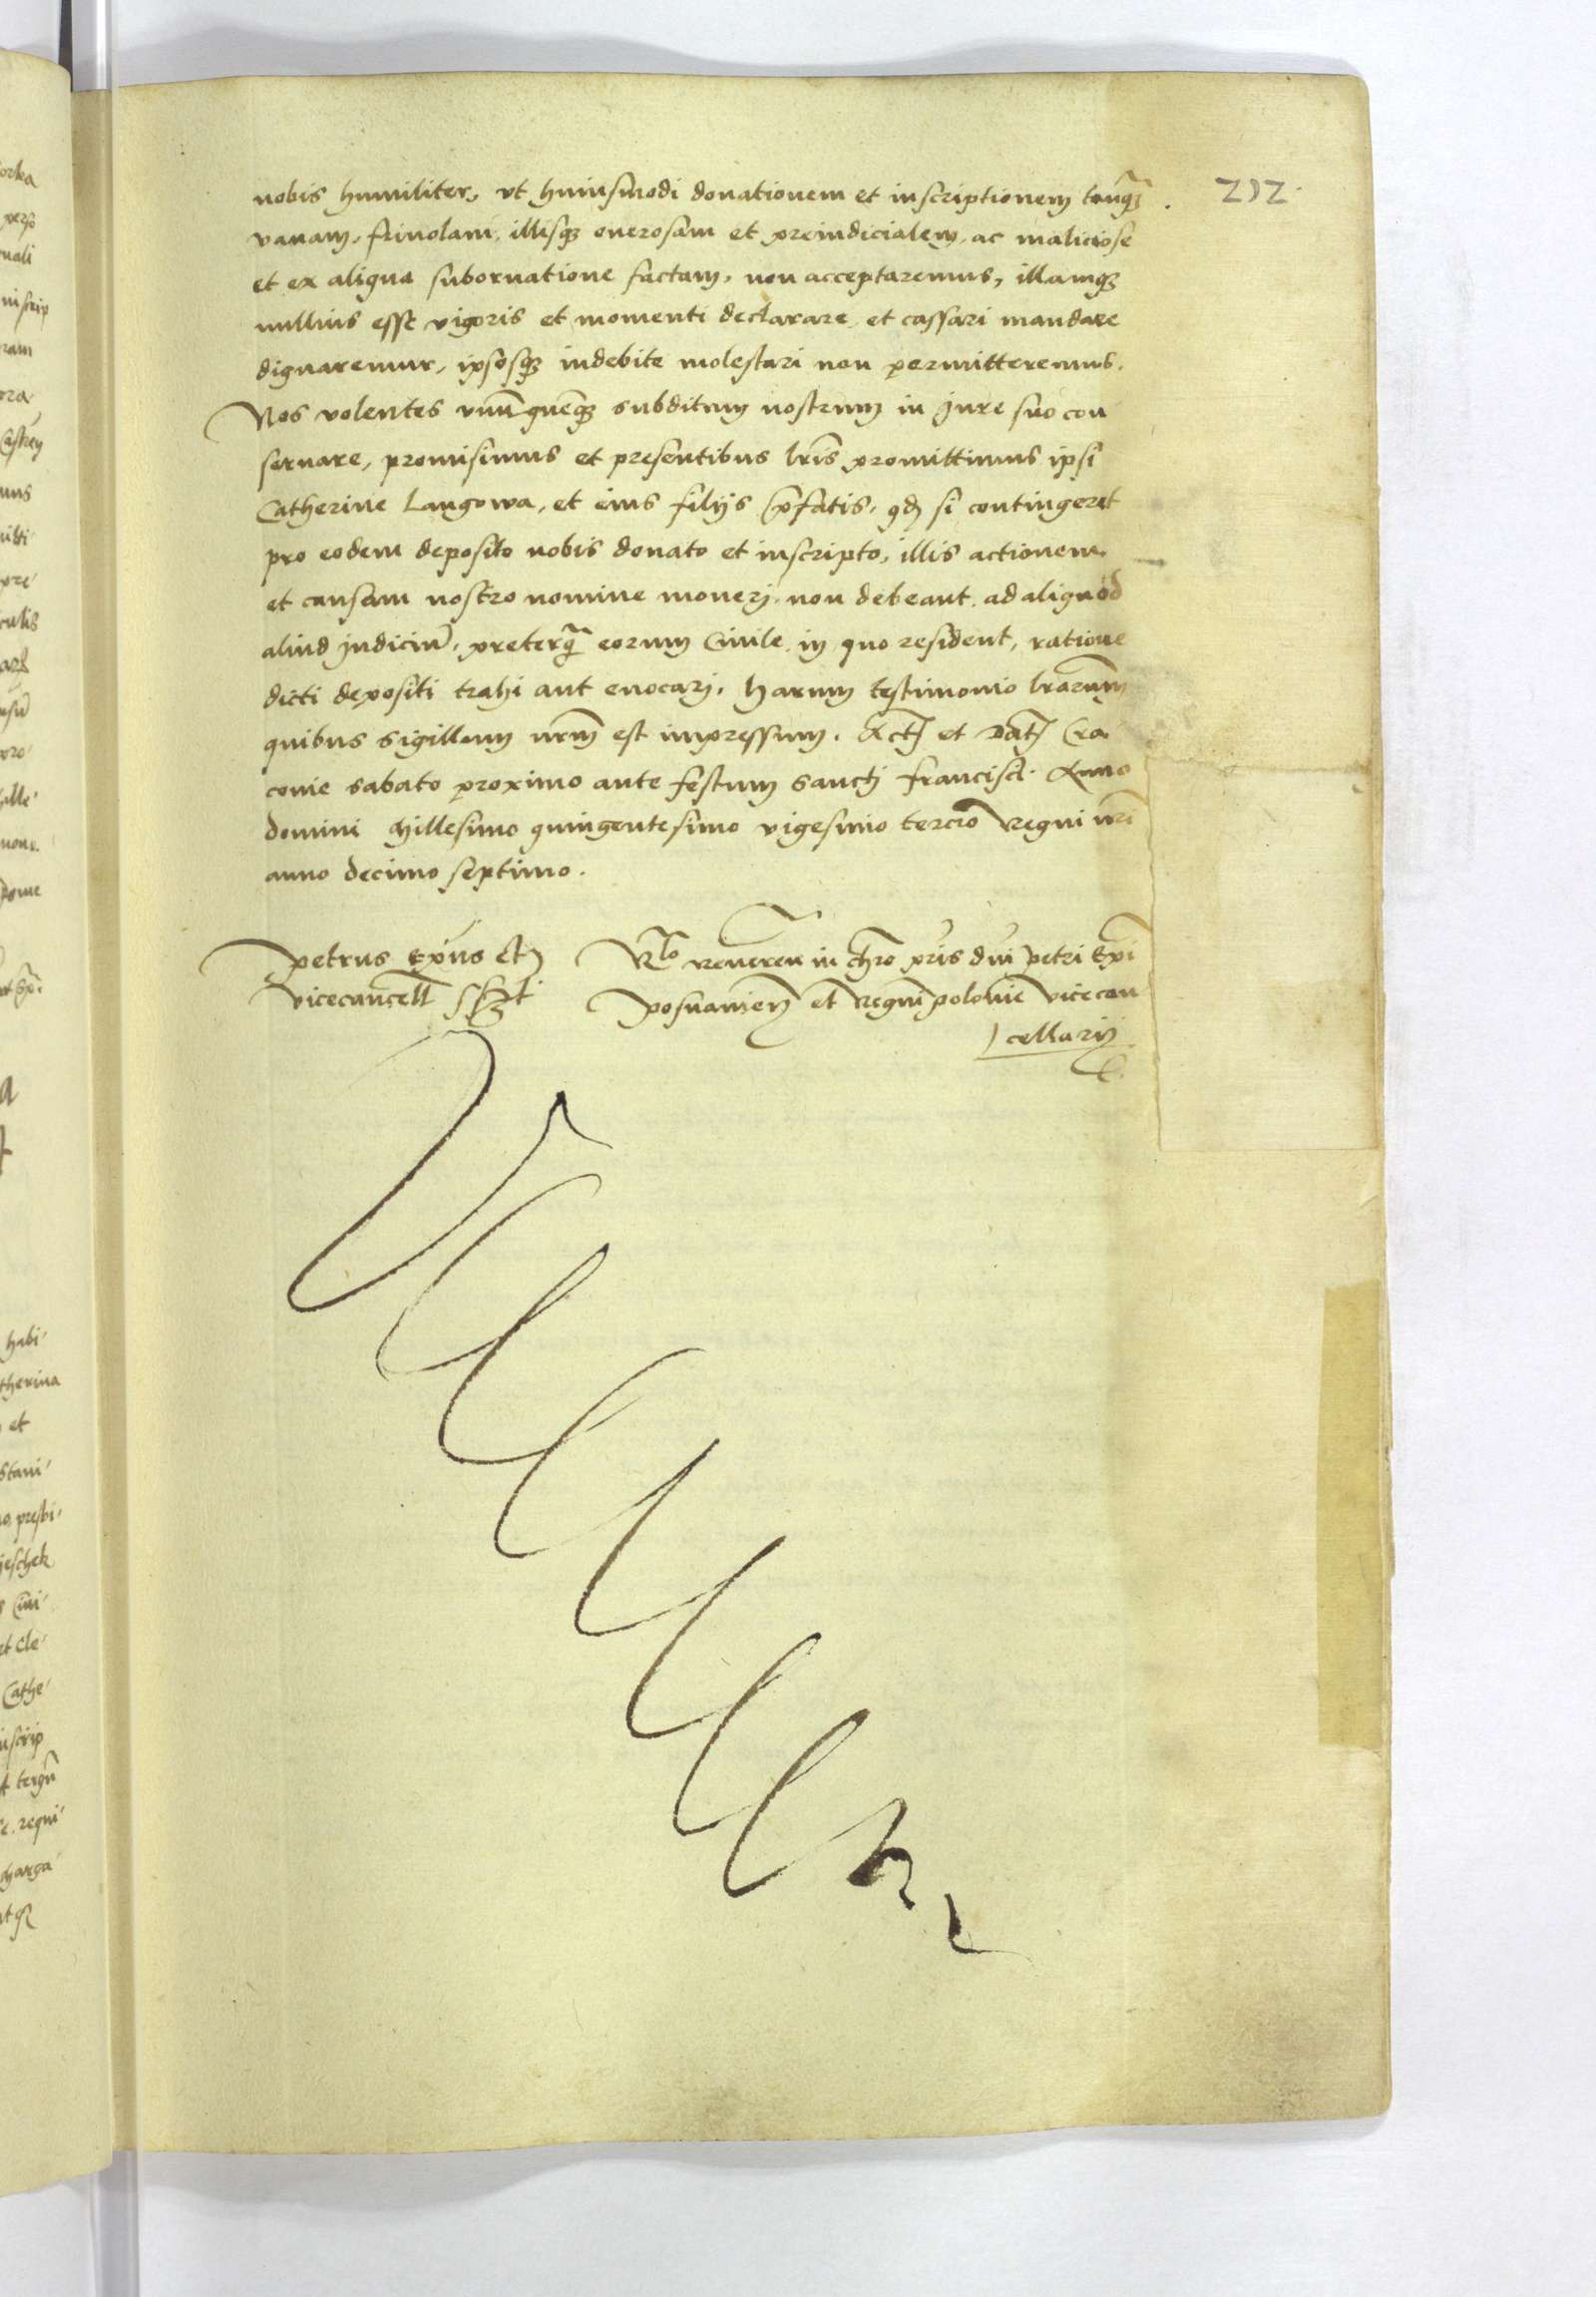 212
nobis humiliter, vt huiusmodi donationem et inscriptionem tanq̃ȝ
vanam, friuolam, illisqȝ onerosam et preiudicialem, ac maliciose
et ex aliqua subornatione factam, non acceptaremus, illamqȝ
nullius esse vigoris et momenti declarare et cassari mandare
dignaremur, ipsosqȝ indebite molestari non permitteremus.
Nos volentes vnũquẽqȝ subditum nostrum in Jure suo con
seruare, promisimus et presentibus lr̃is promittimus ipsi
Catherine Langowa, et eius filijs p̃fatis, qd si contingeret
pro eodem deposito nobis donato et inscripto, illis actionem
et causam nostro nomine moueri, non debeant ad aliquod
aliud Judiciũ, preterq̃ eorum Ciuile in quo resident, ratione
dicti depositi trahi aut euocari, harum testimonio lr̃arum
quibus sigillum nr̃m est impressum. Act et Dat Cra
couie sabato proximo ante festum Sancti Francisci. Anno
domini Millesimo quingentesimo vigesimo tercio Regni nr̃i
anno decimo septimo.
Petrus Ep̃us et
vicecancell̃ sszt
R̃lo reueren in chr̃o pr̃is dñi Petri Ep̃i
Posnanien et Regni polonie vicecan
cellarij